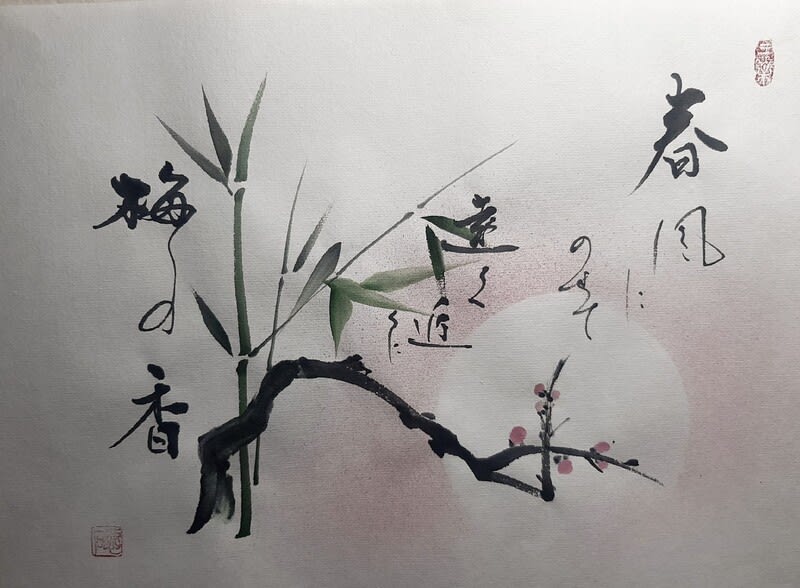 春風に
のせて
遠く近
くに
梅の香